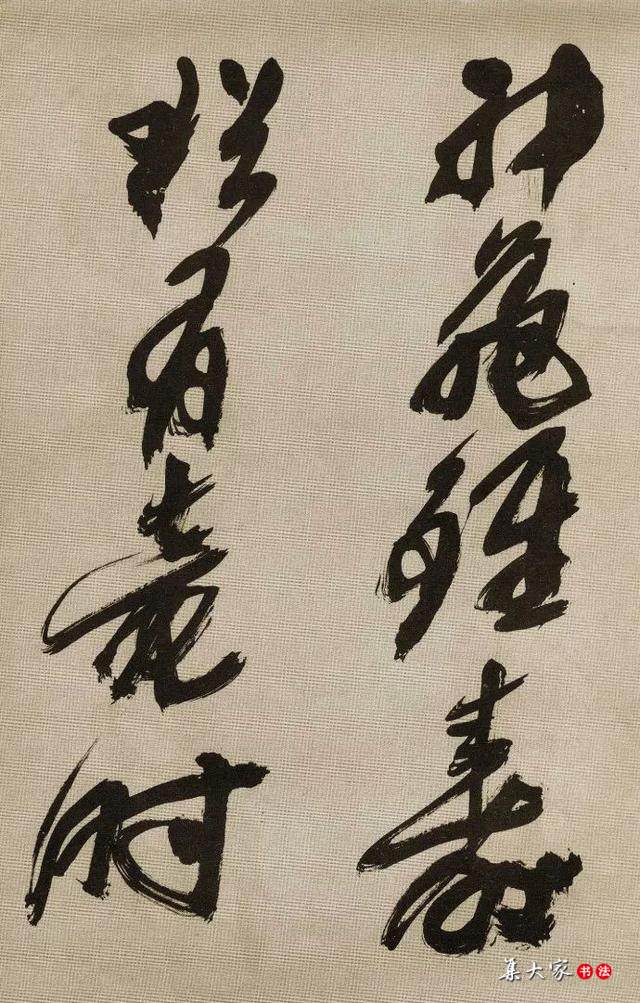 神龜雖壽
猶有竟時
集大家书法